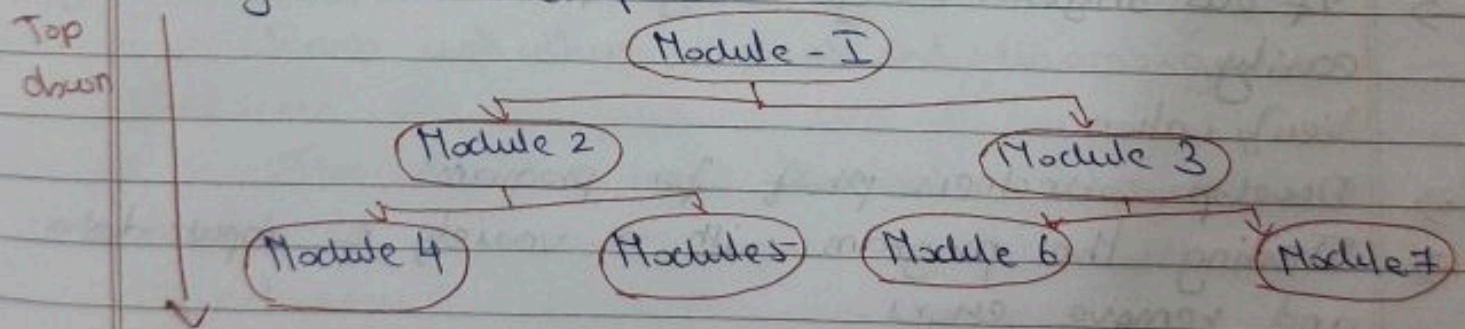 Top
down
Module - I
Module 2 Module 3
Module 4 Module 5 Module 6 Module 7